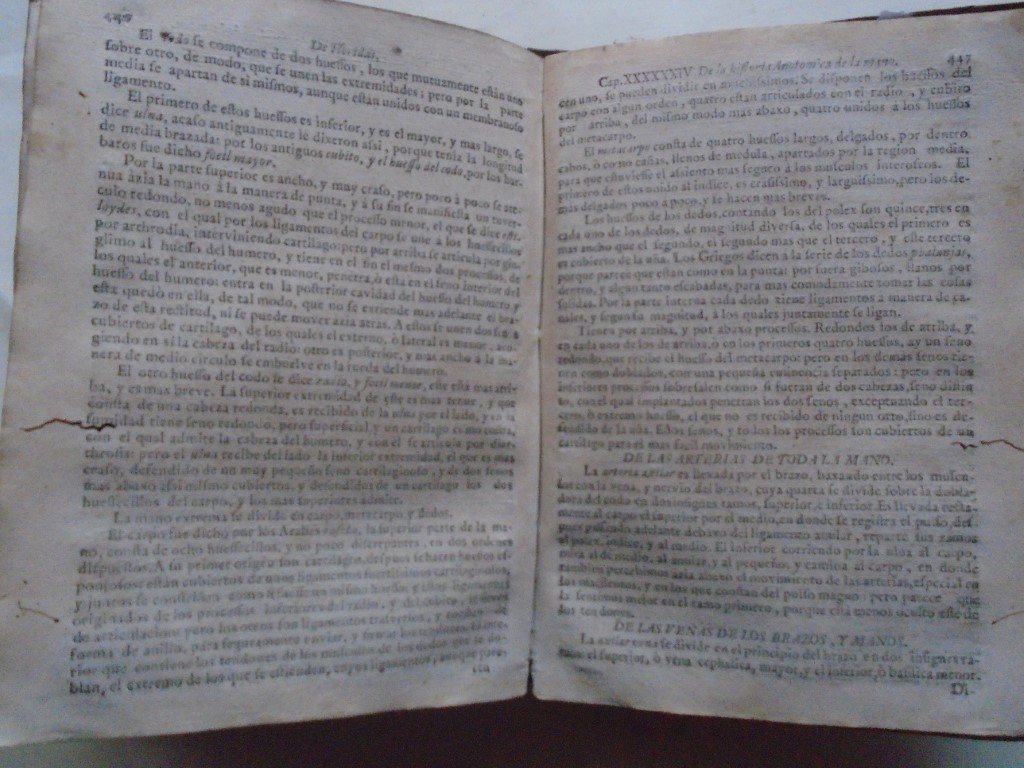 De Heridas.
El codo se compone de dos huessos, los que mutuamente están uno
sobre otro, de modo, que se unen las extremidades; pero por la parte
media se apartan de si mismos, aunque están unidos con un membranoso
ligamento.
El primero de estos huessos es inferior, y es el mayor, y mas largo, se
dice ulna, acaso antiguamente le dixeron assi, porque tenia la longitud
de media brazada: por los antiguos cubito, y el huesso del codo, por los bar-
baros fue dicho focil mayor.
Por la parte superior es ancho, y muy craso, pero poco à poco se ate-
nua àzia la mano à la manera de punta, y à su fin se manifiesta un tuber-
culo redondo, no menos agudo que el processo menor, el que se dice esti-
loydes, con el qual por los ligamentos del carpo se une à los huessecillos
por arthrodia, interviniendo cartilago: pero por arriba se articula por gin-
glimo al huesso del humero, y tiene en el fin el mesmo dos processos, de
los quales el anterior, que es menor, penetra, ò está en el seno interior del
huesso del humero: entra en la posterior cavidad del huesso del humero y
esta quedò en ella, de tal modo, que no se extiende mas adelante el bra-
zo de esta rectitud, ni se puede mover azia atràs. A estos se unen dos senos
cubiertos de cartilago, de los quales el externo, ò lateral es menor, aco-
giendo en sì la cabeza del radio: otro es posterior, y mas ancho à la ma-
nera de medio circulo se embuelve en la rueda del humero.
El otro huesso del codo se dice radio, y focil menor, este està mas arri-
ba, y es mas breve. La superior extremidad de este es mas tenue, y que
consta de una cabeza redonda, es recibido de la ulna por el lado, y en la
sumidad tiene seno redondo, pero superficial, y un cartilago es
con el qual admite la cabeza del humero, y con èl se articula por diar-
throsis: pero el ulna recibe del lado la inferior extremidad, el que es mas
craso, defendido de un muy pequeño seno cartilaginoso, y de dos senos
mas abaxo assi mismo cubiertos, y defendidos de un cartilago los dos
huessecillos del carpo, y los mas superiores admite.
La mano extrema se divide en carpo, metacarpo, y dedos.
El carpo fue dicho por los Arabes rasita, la superior parte de la ma-
no, consta de ocho huessecillos, y no poco diferentes, en dos ordenes
dispuestos. A su primer origen son cartilagos, despues se hacen huessos es-
ponjosos: estàn cubiertos de unos ligamentos fuertissimos cartilaginosos,
y juntos se consienten como si fuessen un mismo huesso: y estos ligamentos
originados de los processos inferiores del radio, y del cubito, sirven
de articulacion: pero los otros son ligamentos trasversos, y tomados en
forma de anillo, para seguramente enviar, y firmar los tendones. El inte-
rior que contiene los tendones de los musculos de los dedos que se do-
blan, el externo de los que se estienden, cuyos ligamentos, aunque pare-
cen
447
Cap.XXXXXXIV De la historia Anatomica de la mano.
cen uno, se pueden dividir en muchissimos. Se disponen los huessos del
carpo con algun orden, quatro estàn articulados con el radio, y cubito
por arriba, del mismo modo mas abaxo, quatro unidos à los huessos
del metacarpo.
El metacarpo consta de quatro huessos largos, delgados, por dentro
cabos, ò como cañas, llenos de medula, apartados por la region media,
para que estuviesse el assiento mas seguro à los musculos interoscos. El
primero de estos unido al indice, es crasissimo, y larguissimo, pero los de-
màs delgados poco à poco, y se hacen mas breves.
Los huessos de los dedos, contando los del polex son quince, tres en
cada uno de los dedos, de magnitud diversa, de los quales el primero es
mas ancho que el segundo, el segundo mas que el tercero, y este tercero
es cubierto de la uña. Los Griegos dicen à la serie de los dedos phalanjas,
porque parece que estàn como en la punta: por fuera gibosos, llanos por
dentro, y algun tanto escabadas, para mas comodamente tomar las cosas
solidas. Por la parte interna cada dedo tiene ligamentos à manera de ca-
nales, y segun su magnitud, à los quales juntamente se ligan.
Tienen por arriba, y por abaxo processos. Redondos los de arriba, y
en cada uno de los de arriba, ò en los primeros quatro huessos, ay un seno
redondo, que recibe el huesso del metacarpo: pero en los demàs senos tie-
nen como doblados, con una pequeña eminencia separados: pero en los
inferiores processos sobresalen como si fueran de dos cabezas, seno distin-
to, con el qual implantados penetran los dos senos, exceptuando el ter-
cero, ò extremo huesso, el que no es recibido de ningun otro, sino es de-
fendido de la uña. Estos senos, y todos los processos son cubiertos de un
cartilago para el mas facil movimiento.
DE LAS ARTERIAS DE TODA LA MANO.
La arteria axilar es llevada por el brazo, baxando entre los muscu-
los con la vena, y nervio del brazo, cuya quarta se divide sobre la dobla-
dura del codo en dos insignes ramos, superior, è inferior. Es llevada recta-
mente al carpo el superior por el medio, en donde se registra el pulso, des-
pues passando adelante debaxo del ligamento anular, reparte sus ramos
al police, indice, y al medio. El inferior corriendo por la ulna al carpo,
mira al de medio, al anular, y al pequeño; y camina al carpo, en donde
tambien percibimos azia abaxo el movimiento de las arterias, especial en
los macilentos, y en los que constan del pulso magno: pero parece que
la sentimos mejor en el ramo primero, porque està menos oculto este de
dos tendones.
DE LAS VENAS DE LOS BRAZOS, Y MANOS.
La axilar vena se divide en el principio del brazo en dos insignes ra-
mos: el superior, ò vena cephalica, mayor, y el inferior, ò basilica menor.
Di-